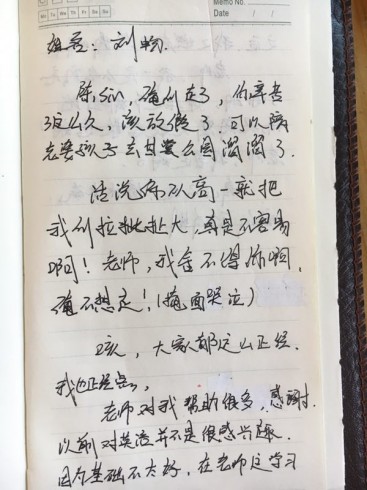 Memo No.
Mo Tu We Th Fr Sa Su
Date / /
姓名：刘畅.
陈Sir，俺们走了，你辛苦
了这么久，该放假了，可以陪
老婆孩子去公园溜溜了.
话说您从高一就把
我们拉扯大，真是不容易
啊！老师，我舍不得你啊，
俺不想走！(掩面哭泣)
咳，大家都这么正经.
我也正经点，
老师对我帮助很多，感谢.
以前对英语并不是很感兴趣.
因为基础不太好，在老师这学习